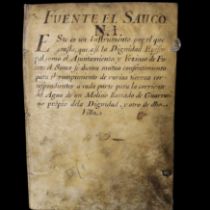 FUENTE EL SAUCO
N. 1.
Este es un Instrumento por el que
consta, que asi la Dignidad Episco-
pal, como el Ayuntamiento, y Vezinos de Fu-
ente el Sauco se dieron mutuo consentimiento
para el rompimiento de varias tierras cor-
respondientes a cada parte para la corriente
del Agua de un Molino
propio dela Dignidad, y otro de dha
Villa.